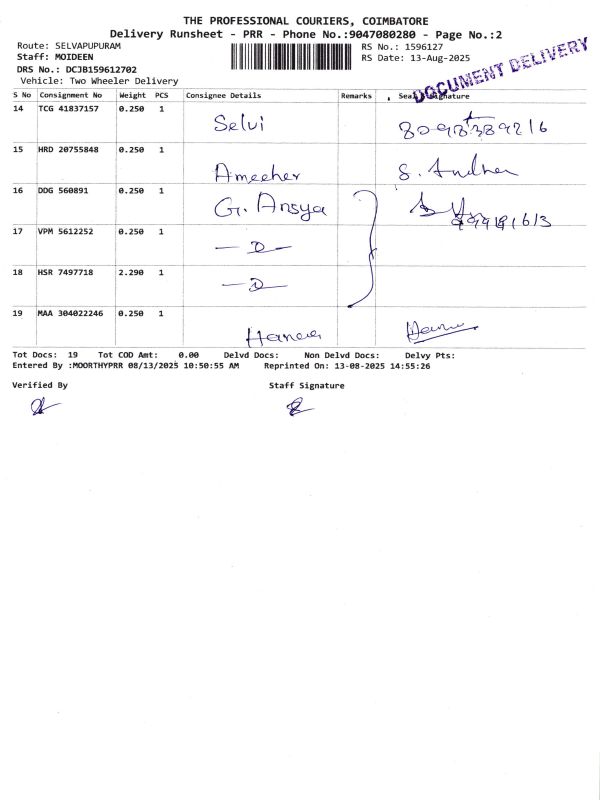 THE PROFESSIONAL COURIERS, COIMBATORE
Delivery Runsheet - PRR - Phone No.:9047080280 - Page No.:2
Route: SELVAPUPURAM
RS No.: 1596127
Staff: MOIDEEN
RS Date: 13-Aug-2025
DRS No.: DCJB159612702
Vehicle: Two Wheeler Delivery
DOCUMENT DELIVERY
S No Consignment No Weight PCS Consignee Details Remarks Seal & Signature
14 TCG 41837157 0.250 1
Selvi
15 HRD 20755848 0.250 1
Ameeher
16 DDG 560891 0.250 1
G. Ansya
17 VPM 5612252 0.250 1
— D —
18 HSR 7497718 2.290 1
— D —
19 MAA 304022246 0.250 1
Tot Docs: 19 Tot COD Amt: 0.00 Delvd Docs: Non Delvd Docs: Delvy Pts:
Entered By :MOORTHYPRR 08/13/2025 10:50:55 AM Reprinted On: 13-08-2025 14:55:26
Verified By Staff Signature